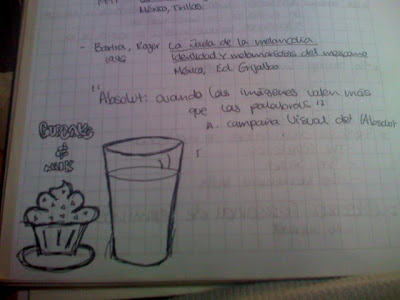 México, Trillas.
- Bartra, Roger La Jaula de la melancolía
1996 identidad y metamorfosis del mexicano
México, Ed Grijalbo
"Absolut: cuando las imágenes valen más
que las palabras"
A. campaña visual del (Absolut
CUPCAKE
≠
MILK